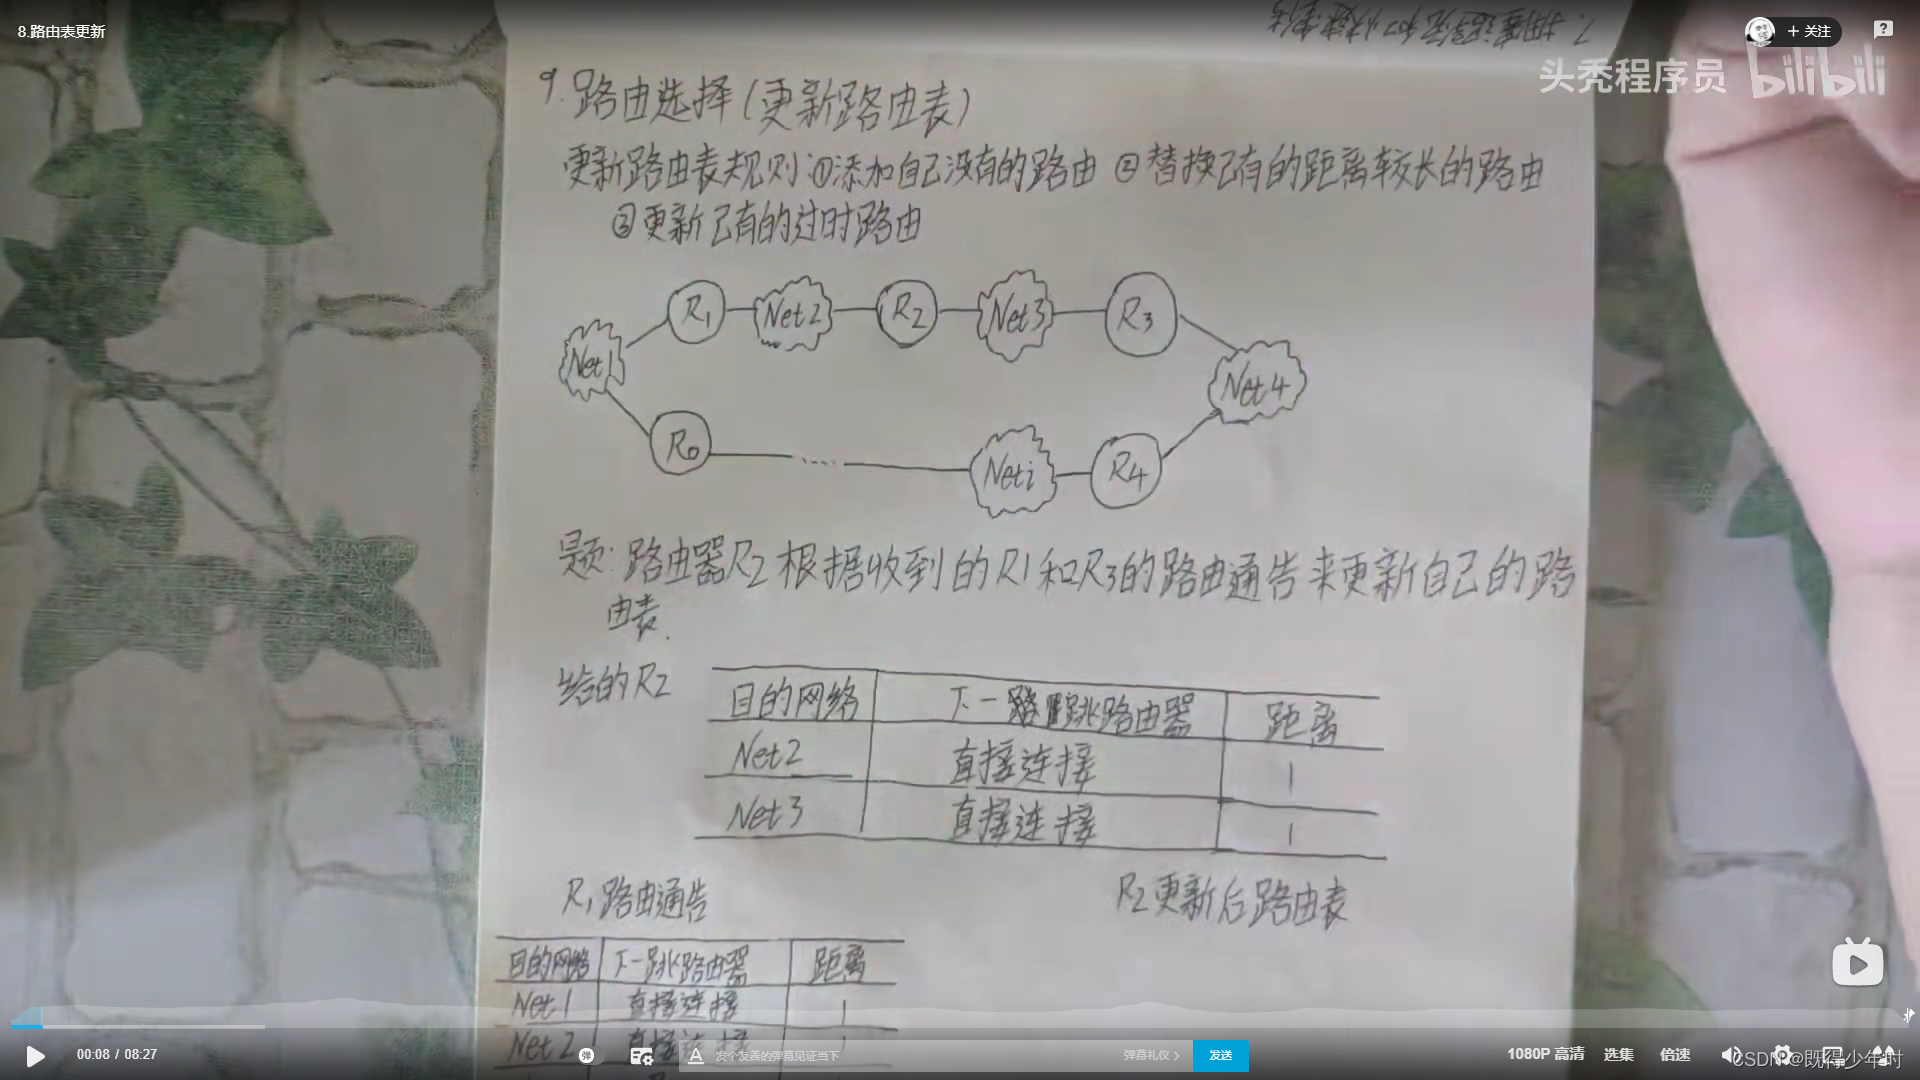 8.路由表更新
+ 关注
头秃程序员 bilibili
9.路由选择(更新路由表)
更新路由表规则:①添加自己没有的路由 ②替换已有的距离较长的路由
③更新已有的过时路由
R1 Net2 R2 Net3 R3
Net1 Net4
R0 Neti R4
题:路由器R2根据收到的R1和R3的路由通告来更新自己的路
由表.
给的R2
目的网络 下一跳路由器 距离
Net2 直接连接 1
Net3 直接连接 1
R1路由通告 R2更新后路由表
目的网络 下一跳路由器 距离
Net1 直接连接 1
Net2 直接连接
00:08 / 08:27 弹 A 发个友善的弹幕见证当下 弹幕礼仪 > 发送 1080P 高清 选集 倍速
CSDN @既得少年时